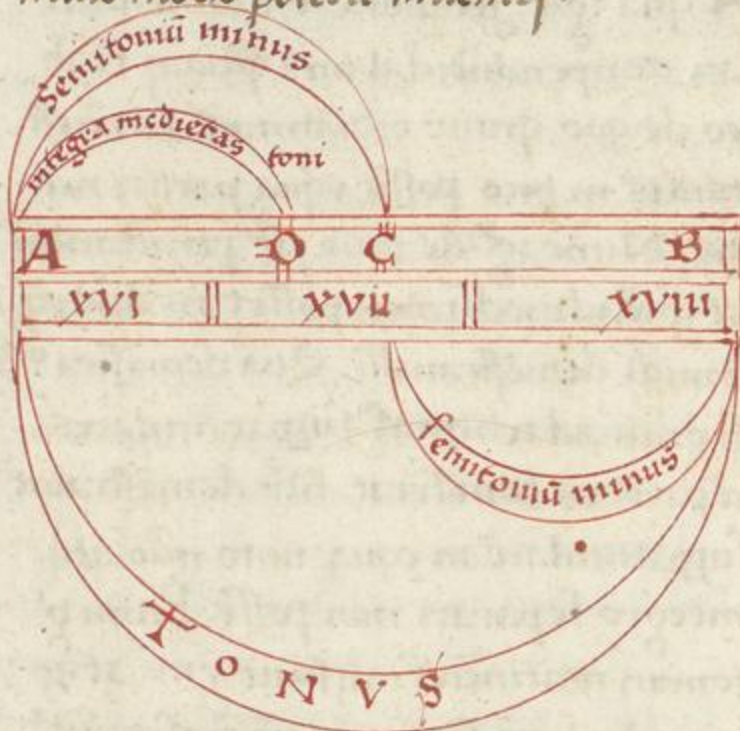 Semitoniū minus
integra medietas toni
A D C B
XVI XVII XVIII
Semitoniū minus
TONVS